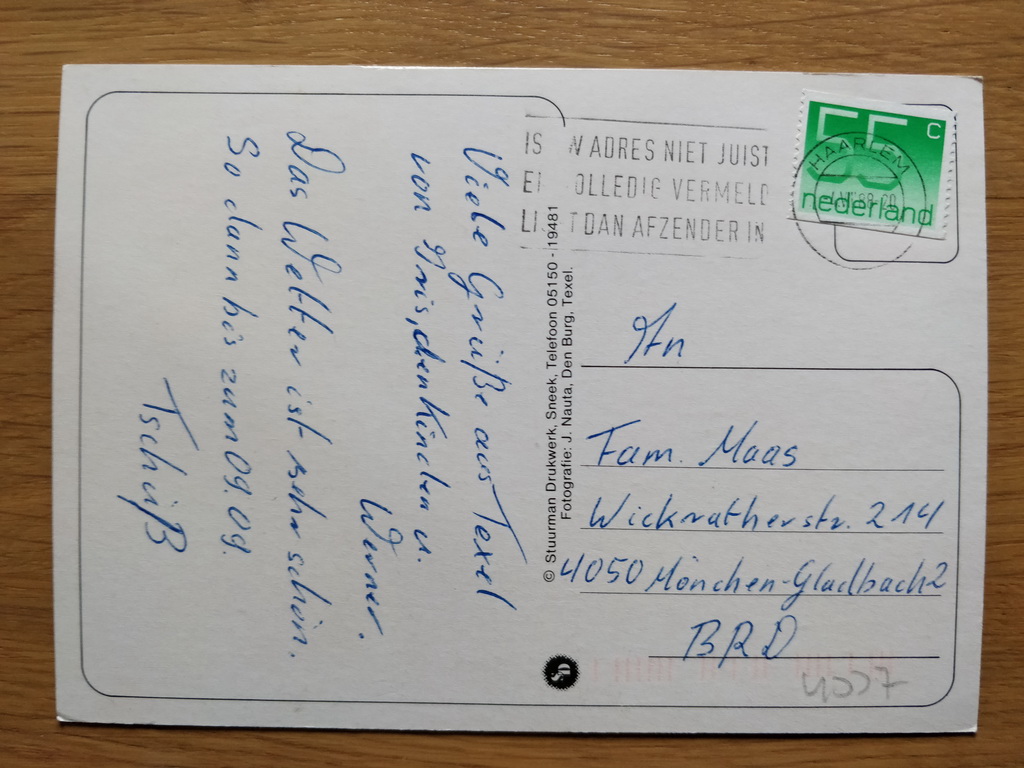 Viele Grüße aus Texel
von Iris, den Kindern u.
Werner.
Das Wetter ist sehr schön.
So dann bis zum 09.09.
Tschüß
© Stuurman Drukwerk, Sneek, Telefoon 05150 - 19481
Fotografie: J. Nauta, Den Burg, Texel.
IS W ADRES NIET JUIST
EN OLLEDIG VERMELD
LI T DAN AFZENDER IN
55 c
nederland
HAARLEM
An
Fam. Maas
Wickratherstr. 214
4050 Mönchen-Gladbach 2
BRD